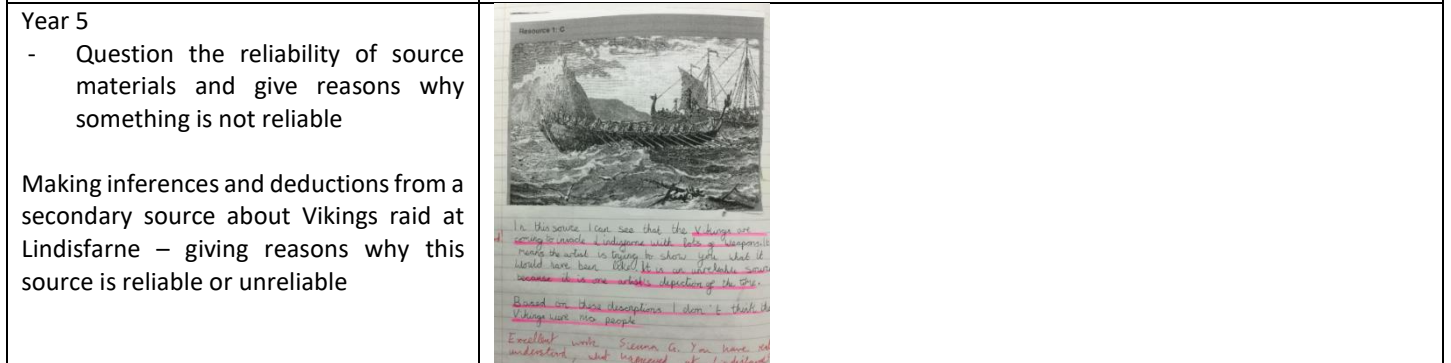 Year 5
- Question the reliability of source
materials and give reasons why
something is not reliable
Making inferences and deductions from a
secondary source about Vikings raid at
Lindisfarne – giving reasons why this
source is reliable or unreliable
Resource 1: G
In this source I can see that the Vikings are
coming to invade Lindisfarne with lots of weapons. It
means the artist is trying to show you what it
would have been like. It is an unreliable source
because it is one artist's depiction of the time.
Based on these descriptions I don't think the
Vikings were nice people
Excellent work Sienna G. You have
understood what happened at